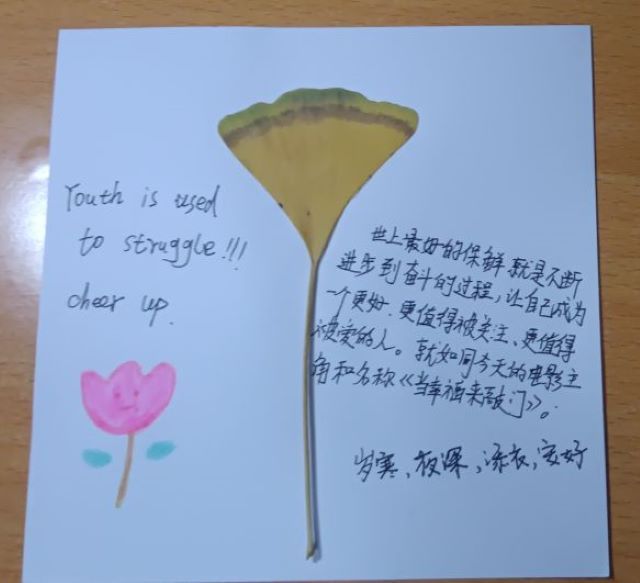 Youth is used
to struggle!!!
cheer up.
世上最好的保鲜就是不断
进步到奋斗的过程，让自己成为
一个更好、更值得被关注、更值得
被爱的人。就如同今天的电影主
角和名称《当幸福来敲门》。
岁寒，夜深，添衣，安好